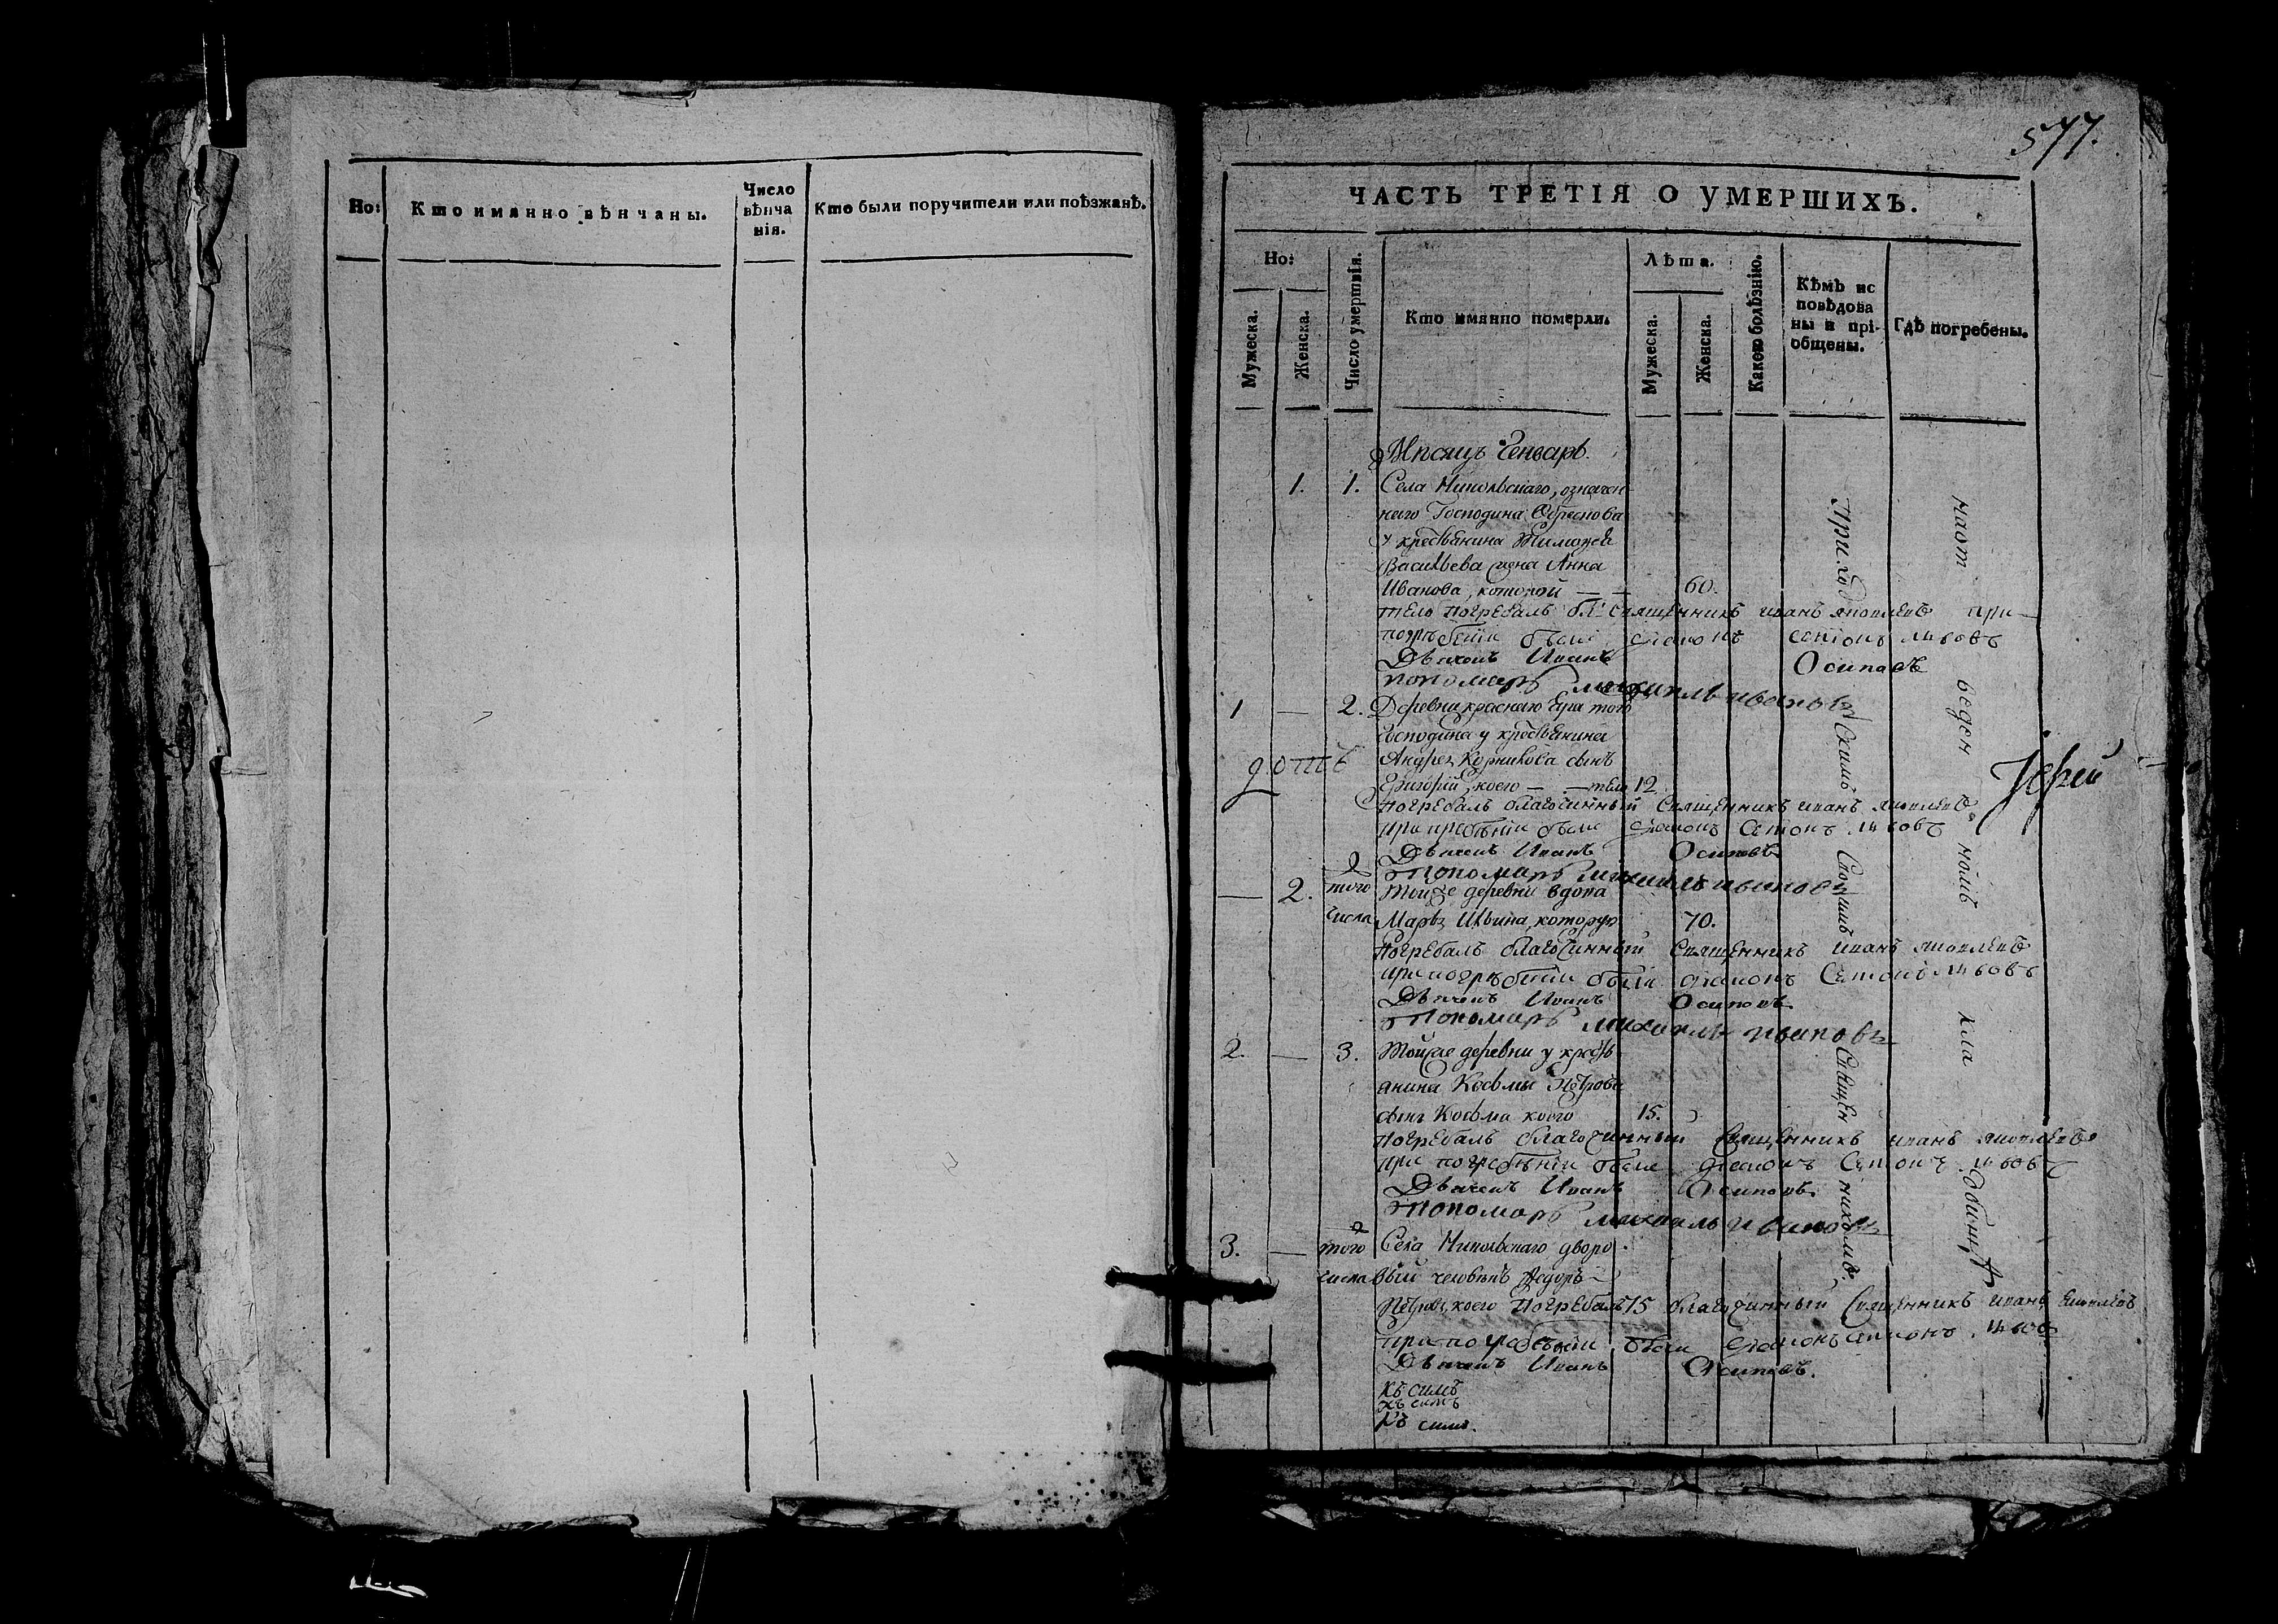 Но:
Кто имянно вѣнчаны.
Число
вѣнча
нія.
Кто были поручители или поѣзжанѣ.
577.
ЧАСТЬ ТРЕТІЯ О УМЕРШИХЪ.
Но:
Мужеска.
Женска.
Число умертвія.
Кто имянно померли.
Лѣта.
Мужеска.
Женска.
Какою болѣзнію.
Кѣмъ ис
повѣдова
ны и прі-
общены.
Гдѣ погребены.
Мѣсяцъ Генварь.
1. 1. Села Никольскаго, означен-
наго Господина Обрескова
у крестьянина Тимофея
Васильева жена Анна
Иванова, которой — — 60.
тело погребалъ бл: священникъ иванъ яковлевъ при
погребеніи были діаконъ симонъ львовъ
Дьячокъ Иванъ Осиповъ
пономарь михаилъ ивановъ
1 — 2. Деревни краснаго того
Господина у крестьянина
Андрея Корникова сынъ
Григорій, коего — — тело 12.
погребалъ благочинный священникъ иванъ яковлевъ
при погребеніи были діаконъ Симонъ львовъ
Дьячекъ Иванъ Осиповъ
Пономарь михаилъ ивановъ
— 2. того Тойже деревни вдова
числа Марья Ильина, которую 70.
погребалъ благочинный священникъ иванъ яковлевъ
при погребеніи были діаконъ Симонъ львовъ
Дьячекъ Иванъ Осиповъ
Пономарь михаилъ ивановъ
2. — 3. Тойже деревни у кресть
янина Косьмы Петрова
сынъ Косьма коего 15.
погребалъ благочинный священникъ иванъ яковлевъ
при погребеніи были діаконъ Симонъ львовъ
Дьячекъ Иванъ Осиповъ
Пономарь михаилъ ивановъ
3. — того Села Никольскаго дворо-
числа вый человѣкъ Федоръ
Петровъ, коего погребалъ 75 благочинный священникъ иванъ яковлевъ
при погребеніи были діаконъ симонъ львовъ
Дьячекъ Иванъ Осиповъ.
къ симъ
къ симъ
къ симъ.
Приход
скимъ
священ
никомъ.
на от
веден
номъ
кла
дбищѣ
Іерей